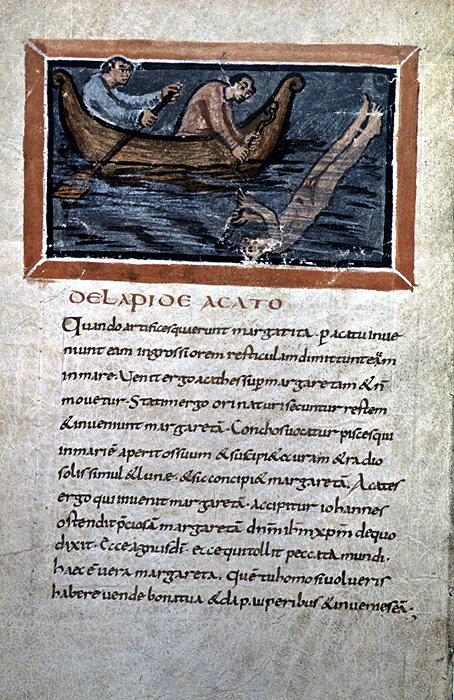 DE LAPIDE ACATO
Quando artifices querunt margarita. p acatu inve
niunt eam ingrossiorem resticulam dimittunt eam
in mare. Venit ergo acathes sup margaretam & ñ
movetur. Statim ergo orinatu secuntur restem
& inveniunt margaretã. Conchos vocatur pisces qui
in mari ẽ aperit os suum & suscipi& & rorem & radio
solis simul & lune. & sic concipi& margaretã. Acates
ergo qui invenit margaretã. accipitur iohannes
ostendit p̃ciosã margaretã dnm̃ ihm̃ xp̃m de quo
dixit. Ecce agnus di. ecce qui tollit peccata mundi.
haec ẽ vera margareta. Quẽ tu homo si volueris
habere vende bona tua & da pauperibus & invenies eã.